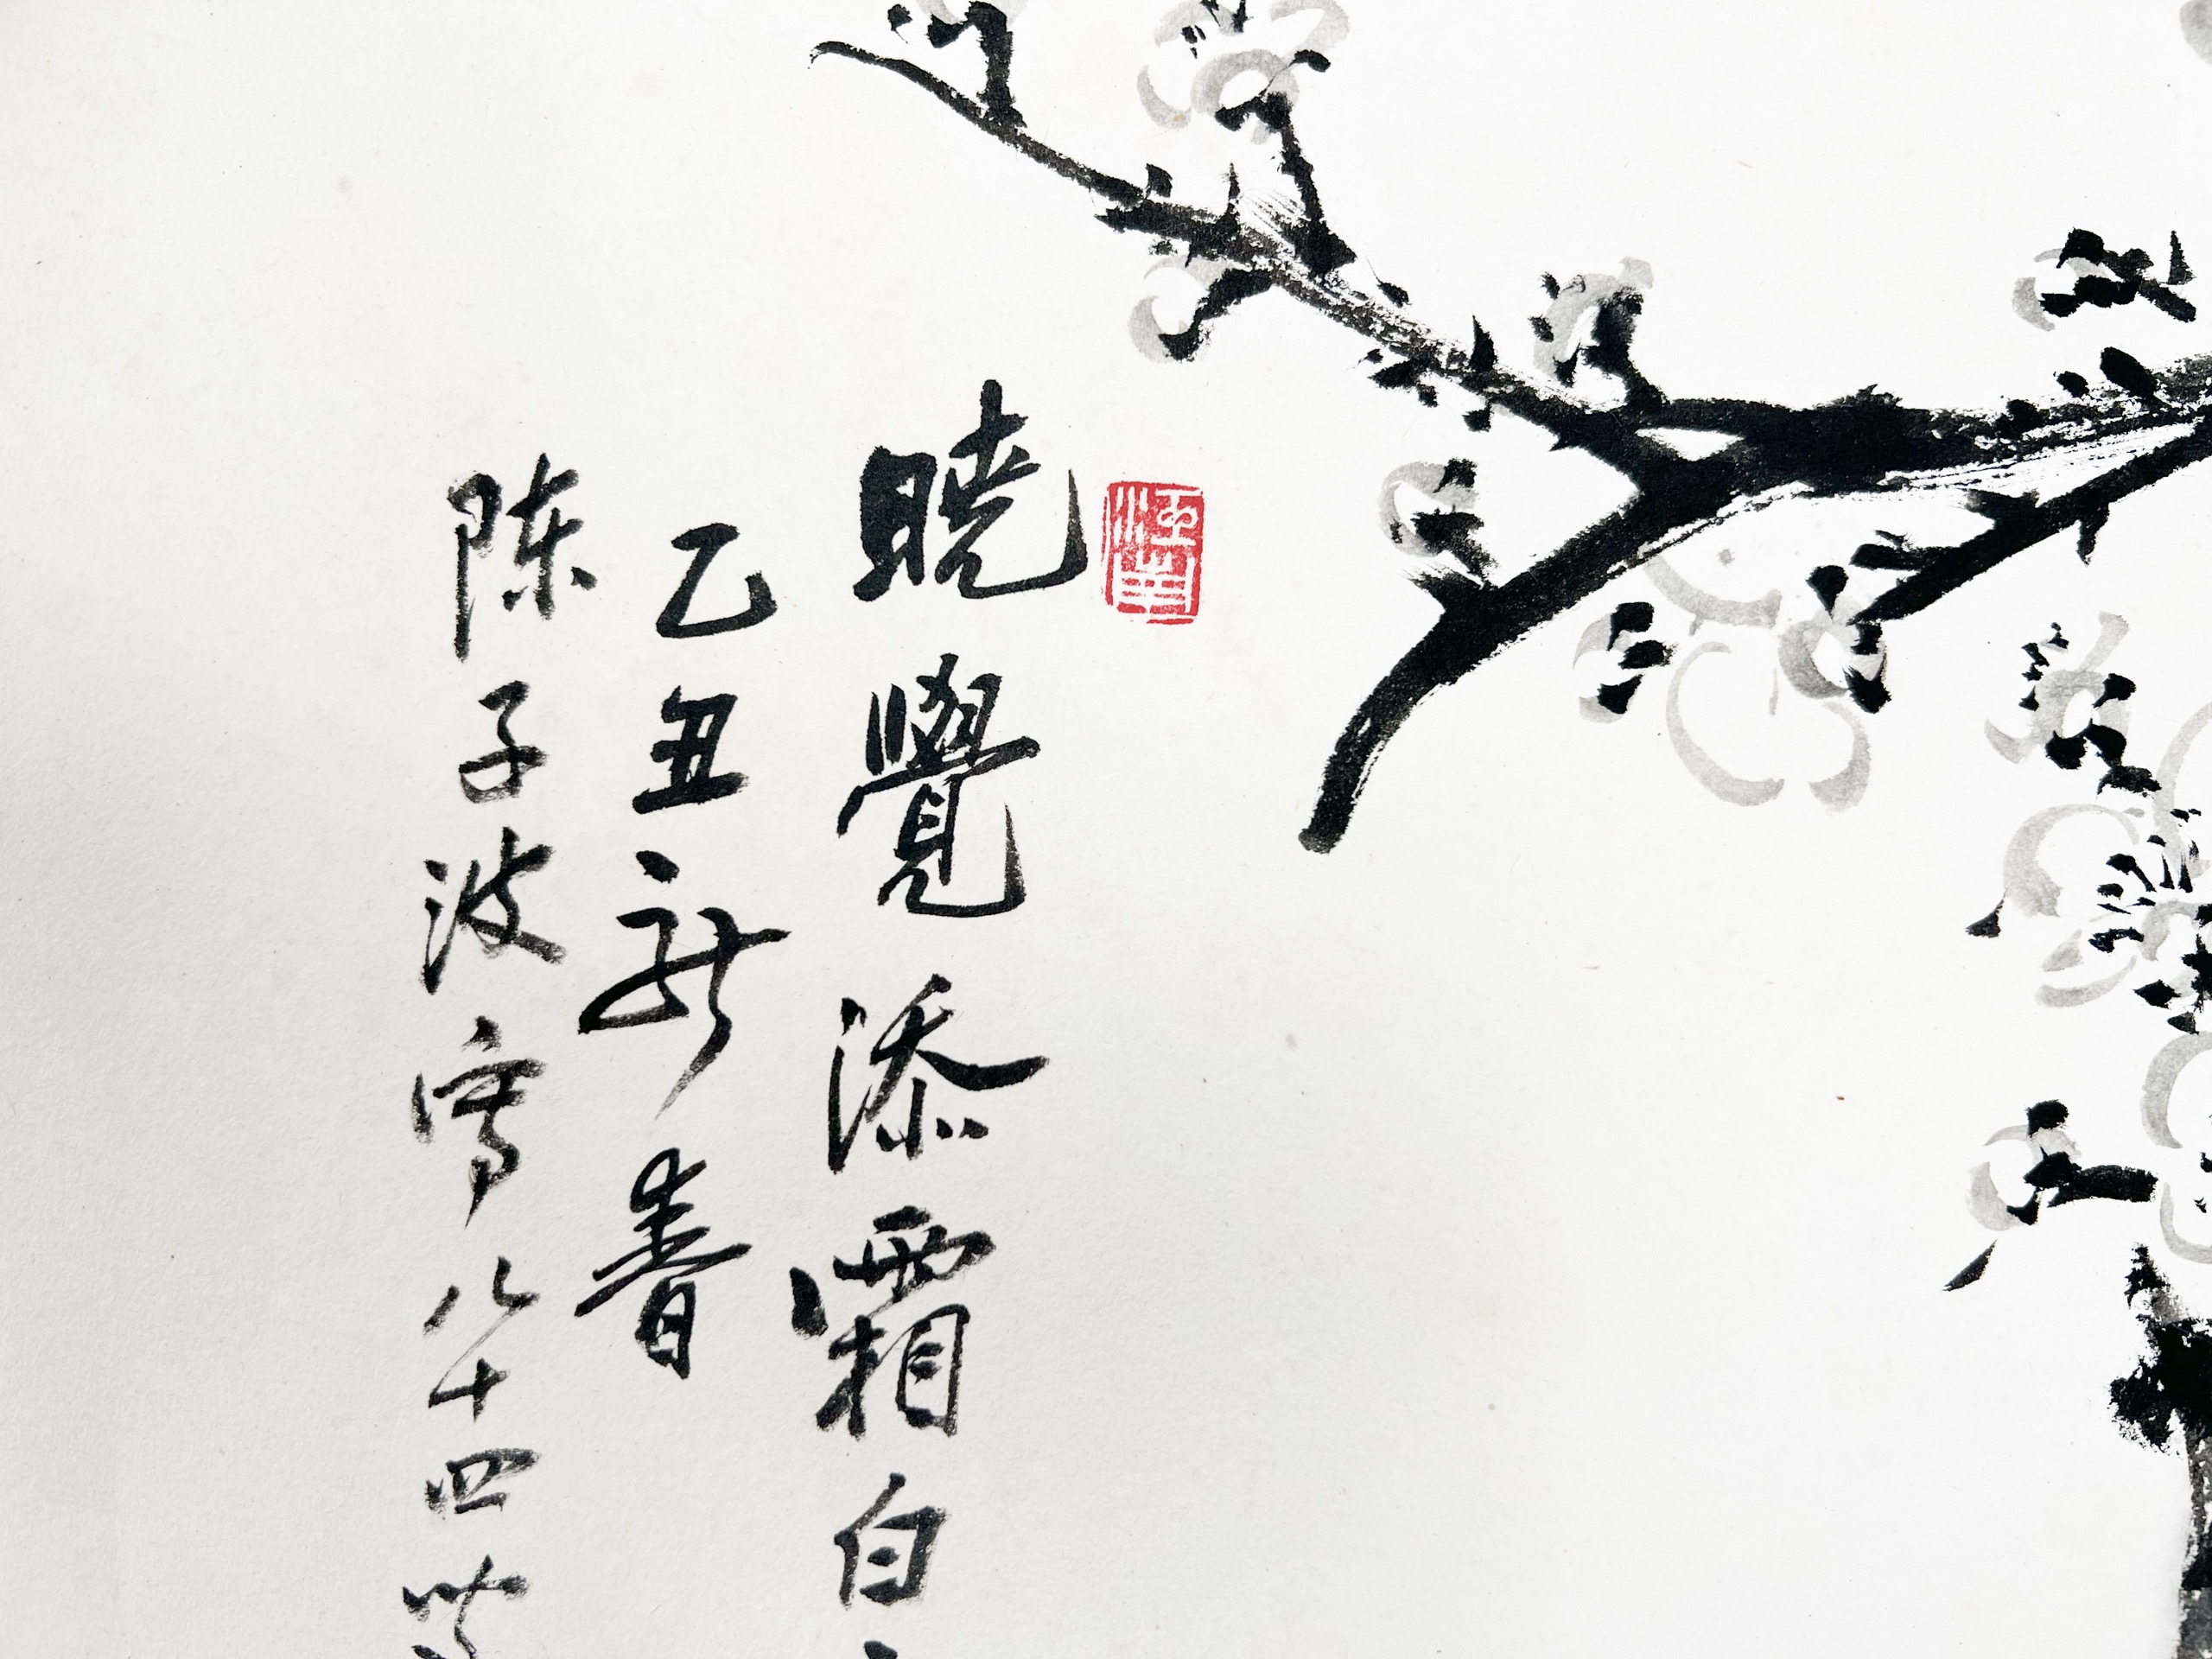 曉覺添霜白
乙丑新春
陳子波寫八十四